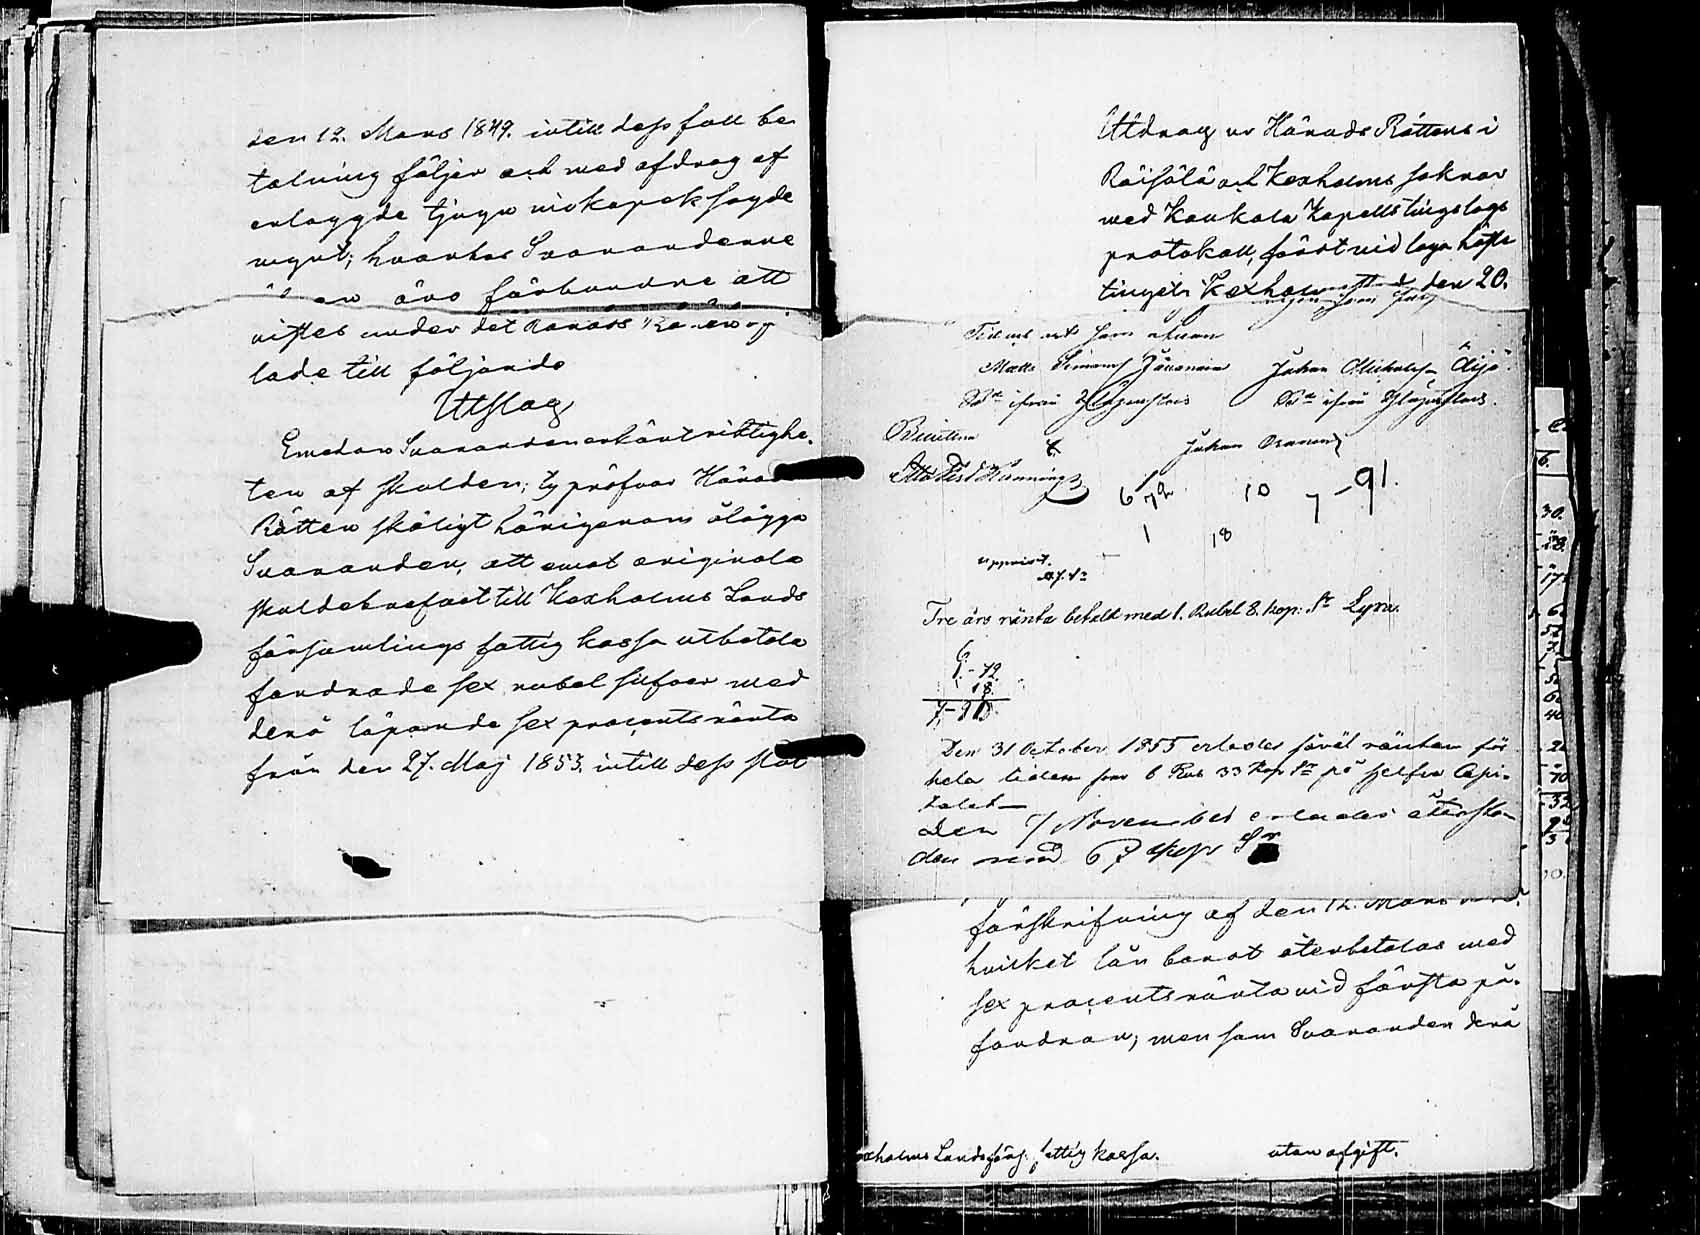 den 12. Mars 1849. intill dess full be
talning följer och med afdrag af
erlaggde tjugu nio kopek sagde
mynt; hvarhos Svaranderne
äro förbundne att
vistes under det Härads Rätten af
lade till följande
Utslag
Emedan Svaranden erkänt riktighe,
ten af skulden; ty pröfvar Härads
Rätten skäligt härigenom ålägga
Svaranden, att emot originala
skuldebrefvet till Kexholms Lands
församlings fattig kassa utbetala
fordrade sex rubel silfver med
derå löpande sex procents ränta
från den 27. Maj 1853. intill dess slut
Utdrag ur Härads Rättens i
Räisälä och Kexholms soknar
med Kaukola Kapells tingslags
protokoll, fördt vid laga höste
tinget i Kexholms den 20.
Till vittne som ofvan
Matts Simons Jääskelain Johan Michelss. Äijö
Johan
Otto Ferd Hannings
6 72 10 7-91.
1 18
uppvist.
Tre års ränta betalt med 1. Rubel 8. kop: Sr Lyra.
6
1.-72.
18.
7-90.
Den 31 October 1855 erlades såväl räntan för
hela tiden som 6 Rub 33 kop Sr på sjelfva Capi-
talet
den 7 November erlades återsto-
den med 67 kop Sr
förskrifning af den 12. Mars
hvilket lån borat återbetalas med
sex procents ränta vid första på,
fordran; men som Svaranden derå
Kexholms Landsförs. fattig kassa. utan afgift.